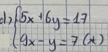 d) { 5x + 6y = 17
9x - y = 7 (*)